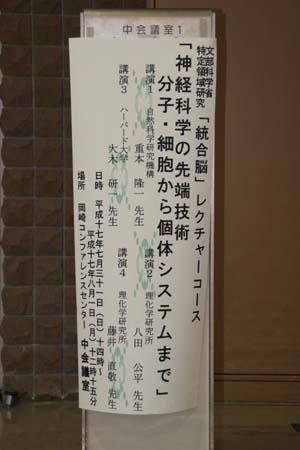 中会議室1
文部科学省
特定領域研究
「統合脳」レクチャーコース
「神経科学の先端技術
分子・細胞から個体システムまで」
講演1 自然科学研究機構
重本 隆一 先生
講演2 理化学研究所
八田 公平 先生
講演3 ハーバード大学
大木 研一 先生
講演4 理化学研究所
藤井 直敬 先生
日時 平成十七年七月三十一日(日)十四時～
平成十七年八月一日(月)十二時十五分
場所 岡崎コンファレンスセンター 中会議室